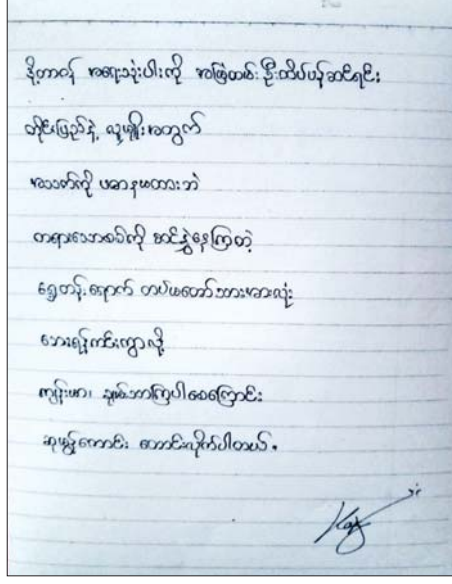 ဒို့တာဝန် အရေးသုံးပါးကို အမြဲတမ်းဦးထိပ်ပန်ဆင်ရင်း
တိုင်းပြည်နဲ့ လူမျိုးအတွက်
အသက်ကို ပဓာနမထားဘဲ
တရားသောစစ်ကို ဆင်နွှဲနေကြတဲ့
ရွှေတန်းရောက် တပ်မတော်သားအားလုံး
ဘေးရန်ကင်းကွာလို့
ကျန်းမာ၊ ချမ်းသာကြပါစေကြောင်း
ဆုမွန်ကောင်း တောင်းလိုက်ပါတယ်။